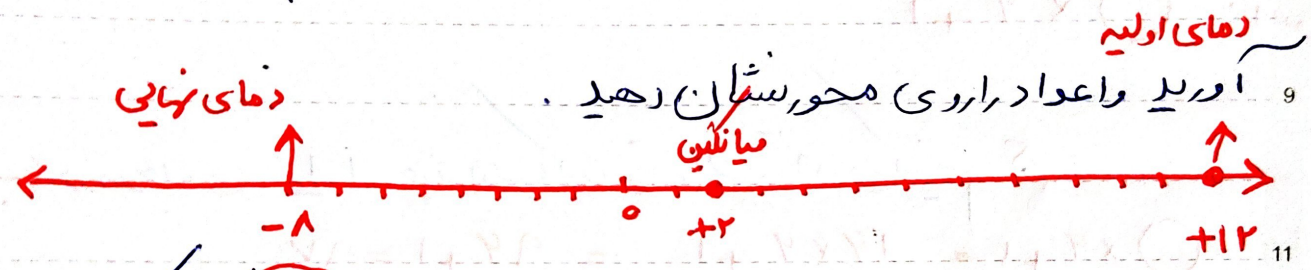 دمای اولیه
آورید و اعداد را روی محور نشان دهید .
9
دمای نهایی
میانگین
-۸ ۰ +۲ +۱۲
11